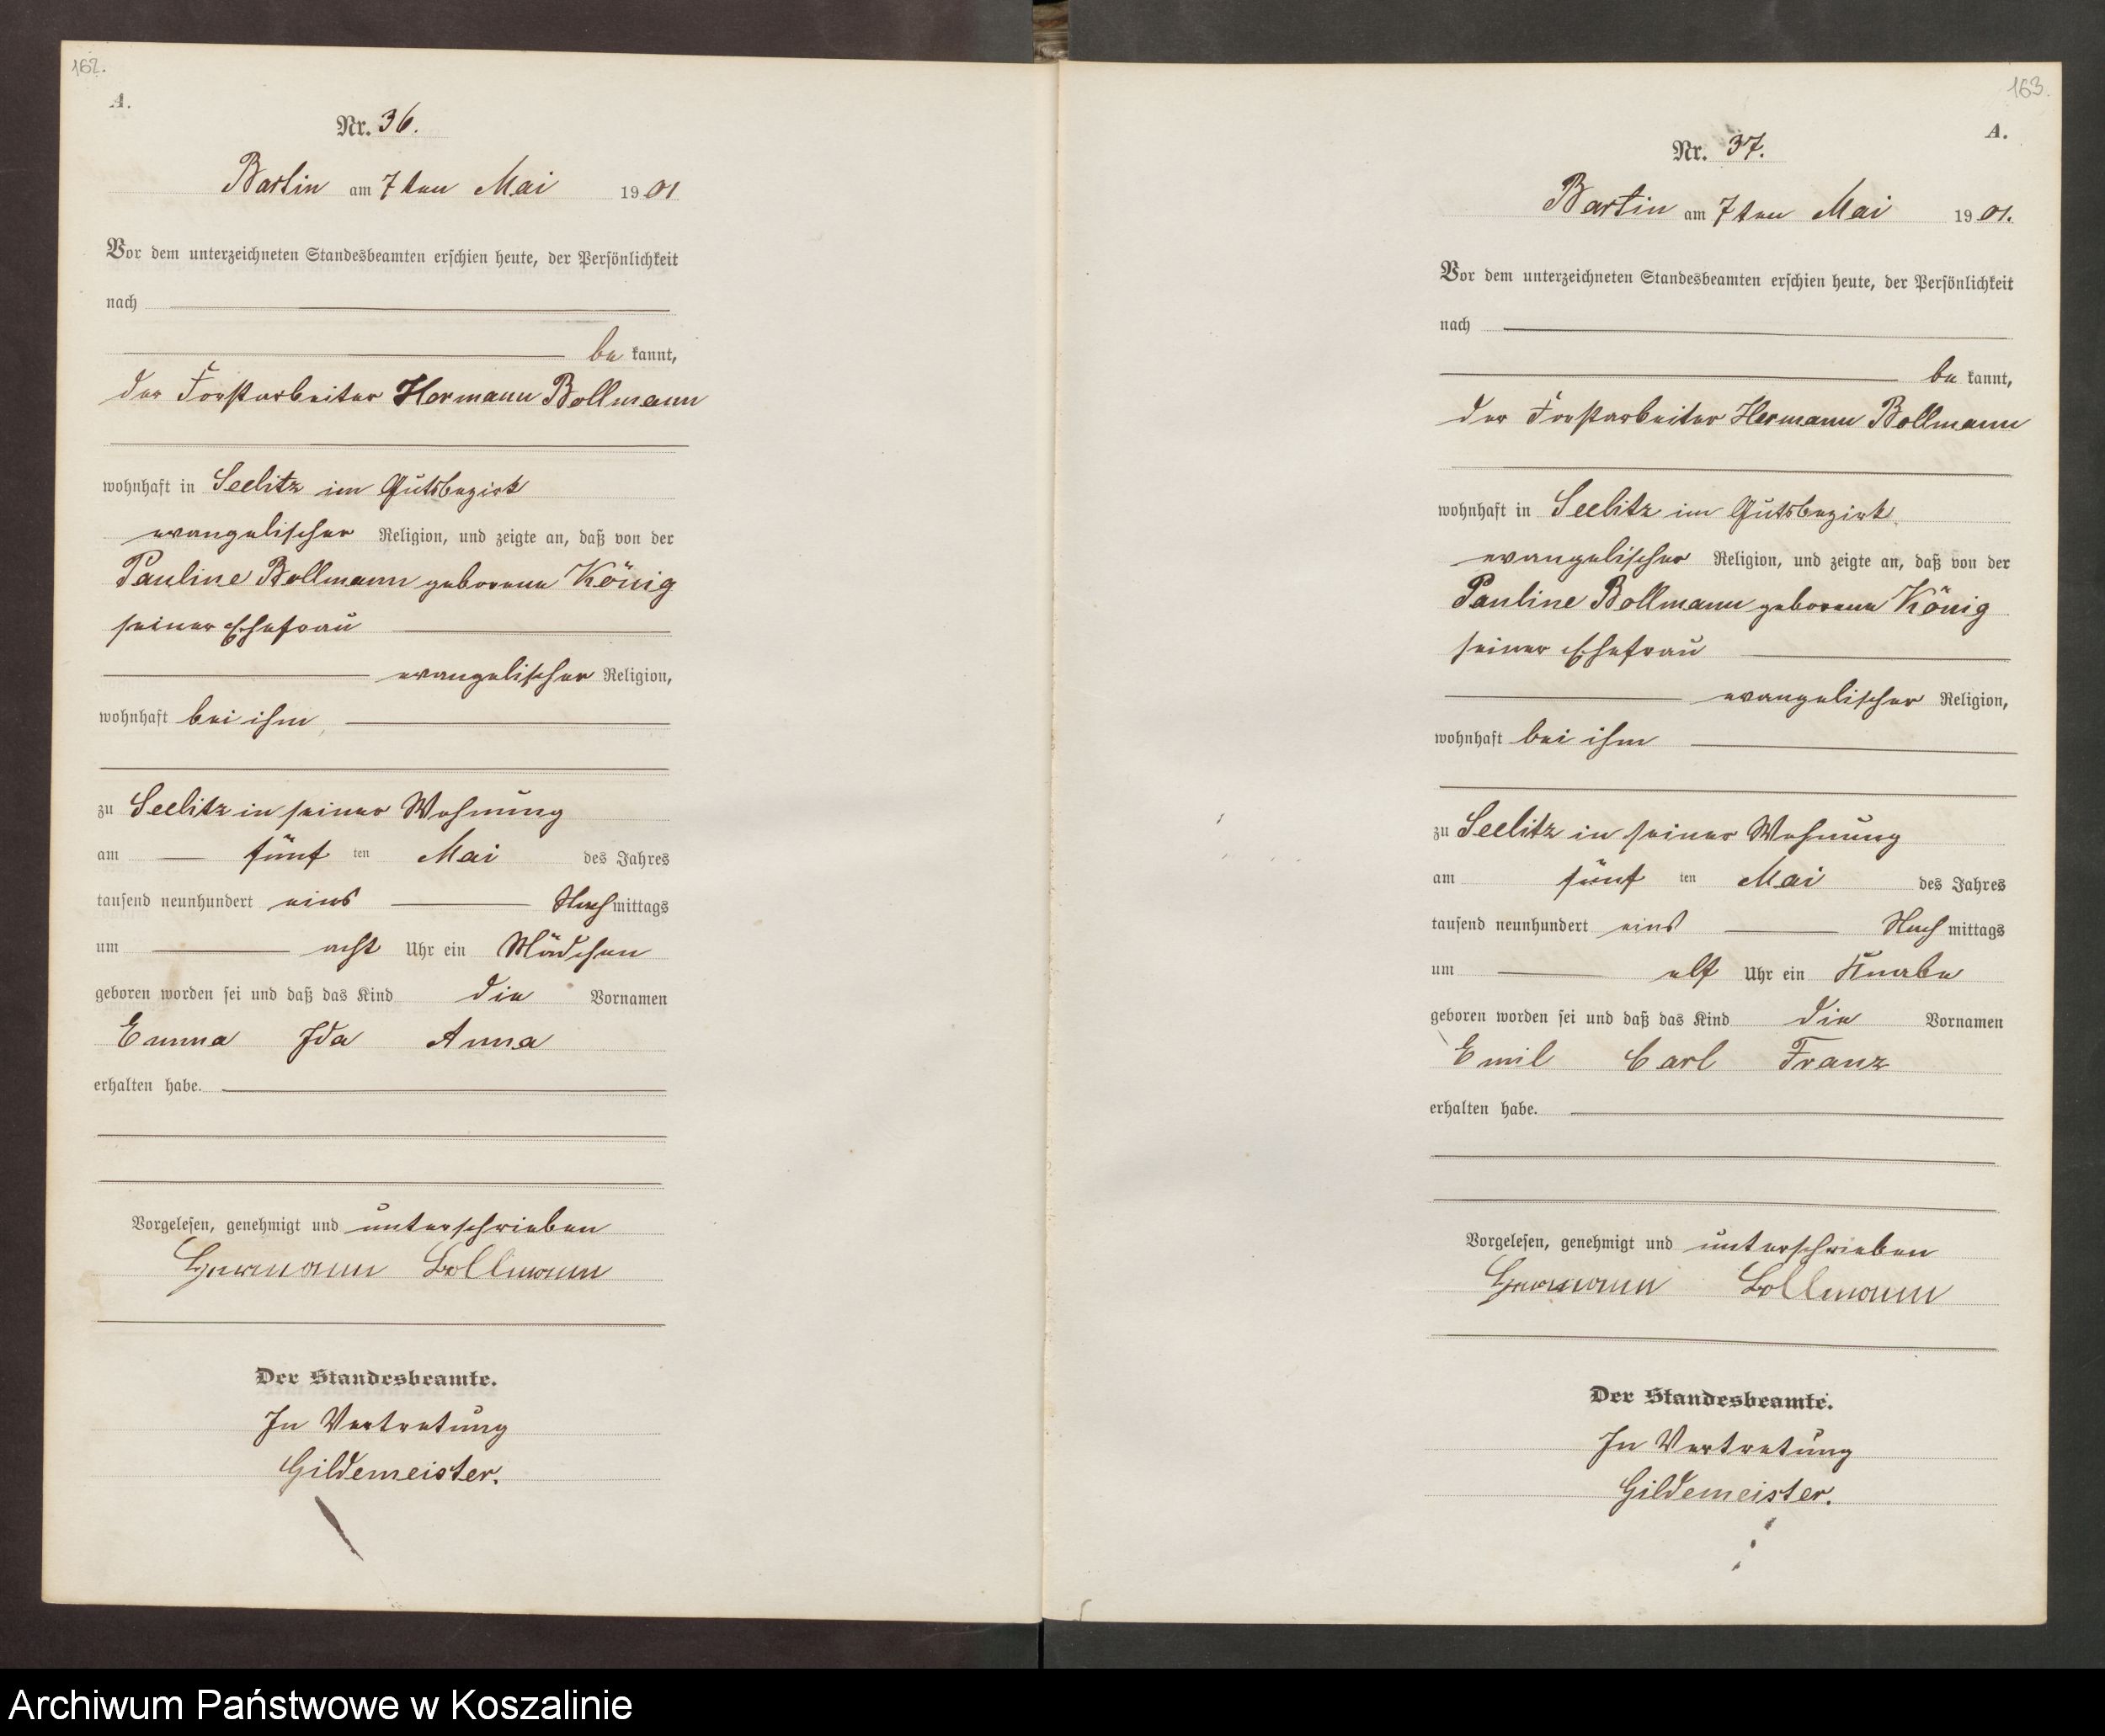 162.
A.
Nr. 36.
Bartin am 7ten Mai 1901
Vor dem unterzeichneten Standesbeamten erschien heute, der Persönlichkeit
nach
be kannt,
der Forstarbeiter Hermann Bollmann
wohnhaft in Seelitz im Gutsbezirk
evangelischer Religion, und zeigte an, daß von der
Pauline Bollmann geborene König
seiner Ehefrau
evangelischer Religion,
wohnhaft bei ihm,
zu Seelitz in seiner Wohnung
am fünf ten Mai des Jahres
tausend neunhundert eins Nachmittags
um acht Uhr ein Mädchen
geboren worden sei und daß das Kind die Vornamen
Emma Ida Anna
erhalten habe.
Vorgelesen, genehmigt und unterschrieben
Hermann Bollmann
Der Standesbeamte.
In Vertretung
Gildemeister.
163.
A.
Nr. 37.
Bartin am 7ten Mai 1901.
Vor dem unterzeichneten Standesbeamten erschien heute, der Persönlichkeit
nach
be kannt,
der Forstarbeiter Hermann Bollmann
wohnhaft in Seelitz im Gutsbezirk
evangelischer Religion, und zeigte an, daß von der
Pauline Bollmann geborene König
seiner Ehefrau
evangelischer Religion,
wohnhaft bei ihm
zu Seelitz in seiner Wohnung
am fünf ten Mai des Jahres
tausend neunhundert eins Nachmittags
um elf Uhr ein Knabe
geboren worden sei und daß das Kind die Vornamen
Emil Carl Franz
erhalten habe.
Vorgelesen, genehmigt und unterschrieben
Hermann Bollmann
Der Standesbeamte.
In Vertretung
Gildemeister.
Archiwum Państwowe w Koszalinie